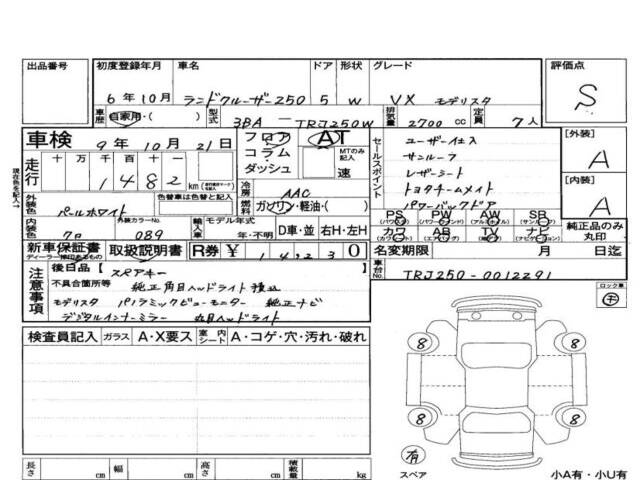 出品番号
初度登録年月 車名 ドア 形状 グレード 評価点
6年10月 ランドクルーザー250 5 W VX モデリスタ S
車歴 自家用・( ) 型式 3BA-TRJ250W 排気量 2700 cc 定員 7人
車検 9年10月21日 フロア コラム ダッシュ AT MTのみ記入 速
現在色を記入→
走行 十 万 千 百 十 一 1482 km
冷房 AAC
燃料 ガソリン・軽油・( )
セールスポイント
ユーザー仕入
サンルーフ
レザーシート
トヨタチームメイト
パワーバックドア
[外装] A
[内装] A
外装色 パールホワイト 色替車は色替と記入
内装色 クロ 外装カラーNo. 089 輸入車 モデル年式 年・不明 D車・並 右H・左H
PS PW AW SR
カワ AB TV ナビ
純正品のみ丸印
新車保証書 取扱説明書 R券 ¥ 14230
名変期限 月 日迄
車台No. TRJ250-0012291
注意事項
後日品[スペアキー ]
不具合箇所等 純正角目ヘッドライト積込
モデリスタ パノラミックビューモニター 純正ナビ
デジタルインナーミラー 丸目ヘッドライト
検査員記入 ガラス A・X要ス 室内シート A・コゲ・穴・汚れ・破れ
8 8
8 8
有
スペア
長さ cm 幅 cm 高さ cm 積載量 kg
小A有・小U有